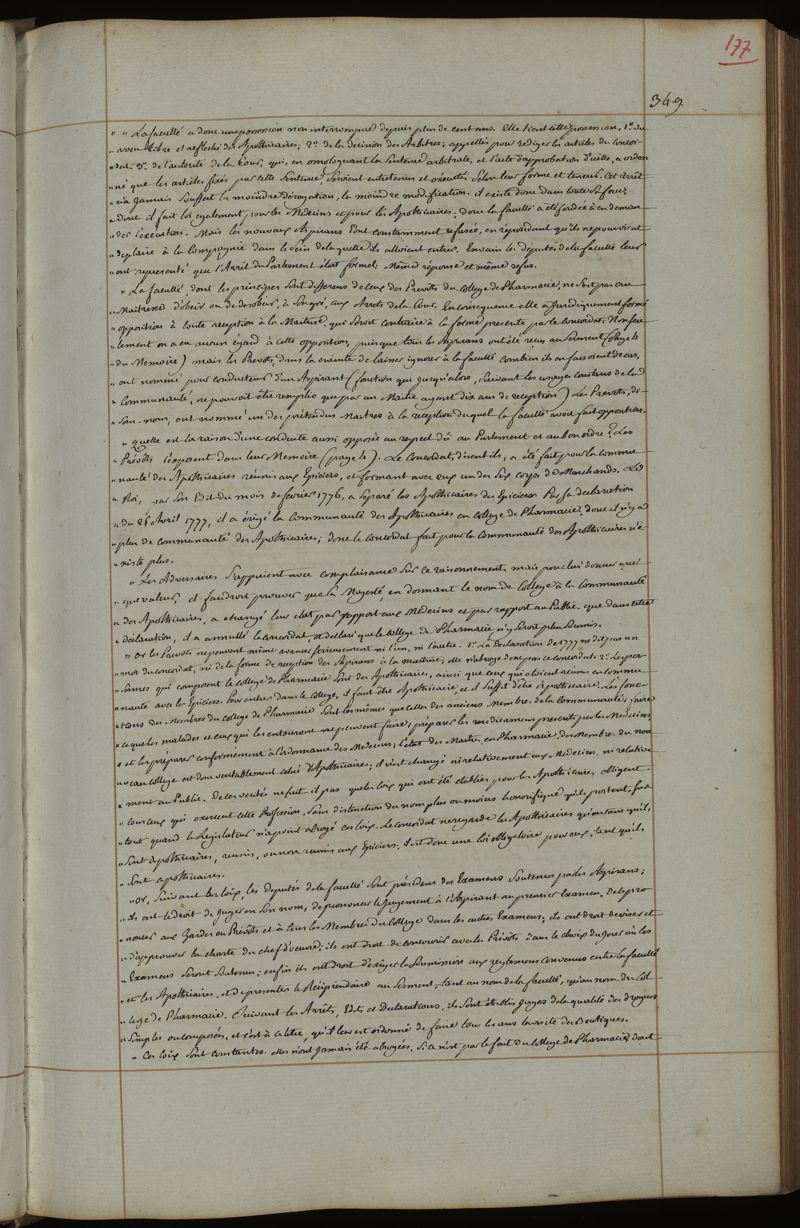 177
349
" " La faculté a donc une possession non interrompue depuis plus de cent ans. Elle tient cette possession, 1.° du
" voeu libre et reflechi des Apothicaires; 2.° de la decision des Arbitres, appellés pour rediger les articles du concor-
" dat; 3.° de l'autorité de la Cour, qui, en omologuant la Sentence arbitrale, et l'acte d'approbation d'icelle, a ordon
" né que les articles fixés par cette Sentence, seroient entretenus et executés selon leur forme et teneur. Cet Arrêt
" n'a Jamais Souffert la moindre dérogation, la moindre modification. il existe donc dans toute sa force;
" donc il fait loi egalement pour les Medecins et pour les Apothicaires; donc la faculté a été fondée à en deman
" der l'execution. Mais les nouveaux Aspirans l'ont constamment refusée, en repondant qu'ils ne pouvoient
" deplaire à la Compagnie dans le sein de laquelle ils alloient entrer. En vain les deputés de la faculté leur
" ont representé que l'Arrêt du Parlement étoit formel; Même réponse et même refus.
" La faculté dont les principes sont differens de ceux des Prevots du College de Pharmacie, ne s'est pas cru
" Maitresse d'obeir ou de desobeir, à son gré, aux Arrets de la Cour. En consequence elle a Juridiquement formé
" opposition à toute reception à la Maitrise, qui seroit contraire à la forme prescrite par le concordat. Non seu
" lement on a eu aucun égard à cette opposition, puisque tous les Aspirans ont été reçus au Serment (Page 4
" du Memoire) mais les Prevots, dans la crainte de laisser ignorer à la faculté combien ils en faisoient de cas,
" ont nommé pour conducteur d'un Aspirant (fonction qui jusqu'alors, suivant les usages constans de la d.
" Communauté, ne pouvoit être remplie que par un Maitre ayant dix ans de reception) Les Prevots, di-
" sons-nous, ont nommé un des prétendus Maitres à la reception duquel la faculté avoit fait opposition.
" quelle est la raison d'une conduite aussi opposée au respect dû au Parlement et au bon ordre? Les
" Prévôts l'exposent dans leur Memoire (page 4). Le Concordat, disent ils, a été fait pour la commu
" nauté des Apothicaires réunis aux Epiciers, et formant avec eux un des Six corps des Marchands. Le
" Roi, par son Edit du mois de fevrier 1776, a separé les Apothicaires des Epiciers. Par sa declaration
" du 25 Avril 1777, il a érigé la Communauté des Apothicaires en college de Pharmacie; donc il n'y a
" plus de communauté des Apothicaires; donc le concordat fait pour la Communauté des Apothicaires n'e
" xiste plus.
" Les Adversaires s'appuient avec complaisance sur ce raisonnement, mais pour lui donner quel
" que valeur, il faudroit prouver que Sa Majesté, en donnant le nom de College à la Communauté
" des Apothicaires, a changé leur etat par rapport aux Medecins et par rapport au Public. que dans cette
" déclaration, il a annullé le concordat, et déclaré que le College de Pharmacie n'y seroit plus soumis.
" or les Prevots ne peuvent même avancer serieusement ni l'un, ni l'autre. 1.° La Declaration de 1777 ne dit pas un
" mot du concordat, ni de la forme de reception des Aspirans à la maitrise; elle n'abroge donc pas le concordat. 2.° Les per
" sonnes qui composent le college de Pharmacie sont des Apothicaires, ainsi que ceux qui étoient reunis en commu
" nauté avec les Epiciers. Pour entrer dans le College, il faut être Apothicaire, et il suffit d'être Apothicaire. Les fonc
" tions des Membres du college de Pharmacie sont les mêmes que celles des anciens Membres de la Communauté; faire
" ce que les malades et ceux qui les entourent ne peuvent faire; préparer les medicamens prescrits par les Medecins
" et les préparer conformément à l'ordonnance des Medecins; L'état des Maitres en Pharmacie, des Membres du nou
" veau College est donc veritablement celui d'Apothicaires; il n'est changé ni relativement aux Medecins, ni relative
" ment au Public. De ces verités ne suit il pas que les loix qui ont été établies pour les Apothicaires, obligent
" tous ceux qui exercent cette Profession, sans distinction du nom plus ou moins honorifique qu'ils portent, sur
" tout quand le Legislateur n'a point abrogé ces loix. Le concordat ne regarde les Apothicaires qu'en tant qu'ils
" sont Apothicaires, reunis, ou non reunis aux Epiciers. il est donc une loi obligatoire pour eux, tant qu'ils
" sont apothicaires.
" or, suivant les loix, les deputés de la faculté sont présidens des Examens Soutenus par les Aspirans;
" ils ont le droit de Juger en son nom, de prononcer le Jugement à l'Aspirant au premier Examen, de le pro
" noncer aux Gardes ou Prévots et à tous les Membres du College dans les autres Examens; ils ont droit de viser et
" d'approuver la charte du chef d'oeuvre; ils ont droit de concourir avec les Prévots dans le choix du Jour où les
" Examens seront Soutenus; enfin ils ont droit d'exiger la Soumission aux reglemens convenus entre la faculté
" et les Apothicaires, et de presenter le Récipiendaire au Serment, tant au nom de la faculté, qu'au nom du Col
" lege de Pharmacie. Suivant les Arrêts, Edits et Declarations, ils sont établis Juges de la qualité des drogues
" simples ou composées, et c'est à ce titre, qu'il leur est ordonné de faire tous les ans la visite des Boutiques.
" Ces loix sont constantes. elles n'ont Jamais été abrogées, Si ce n'est par le fait du College de Pharmacie dont